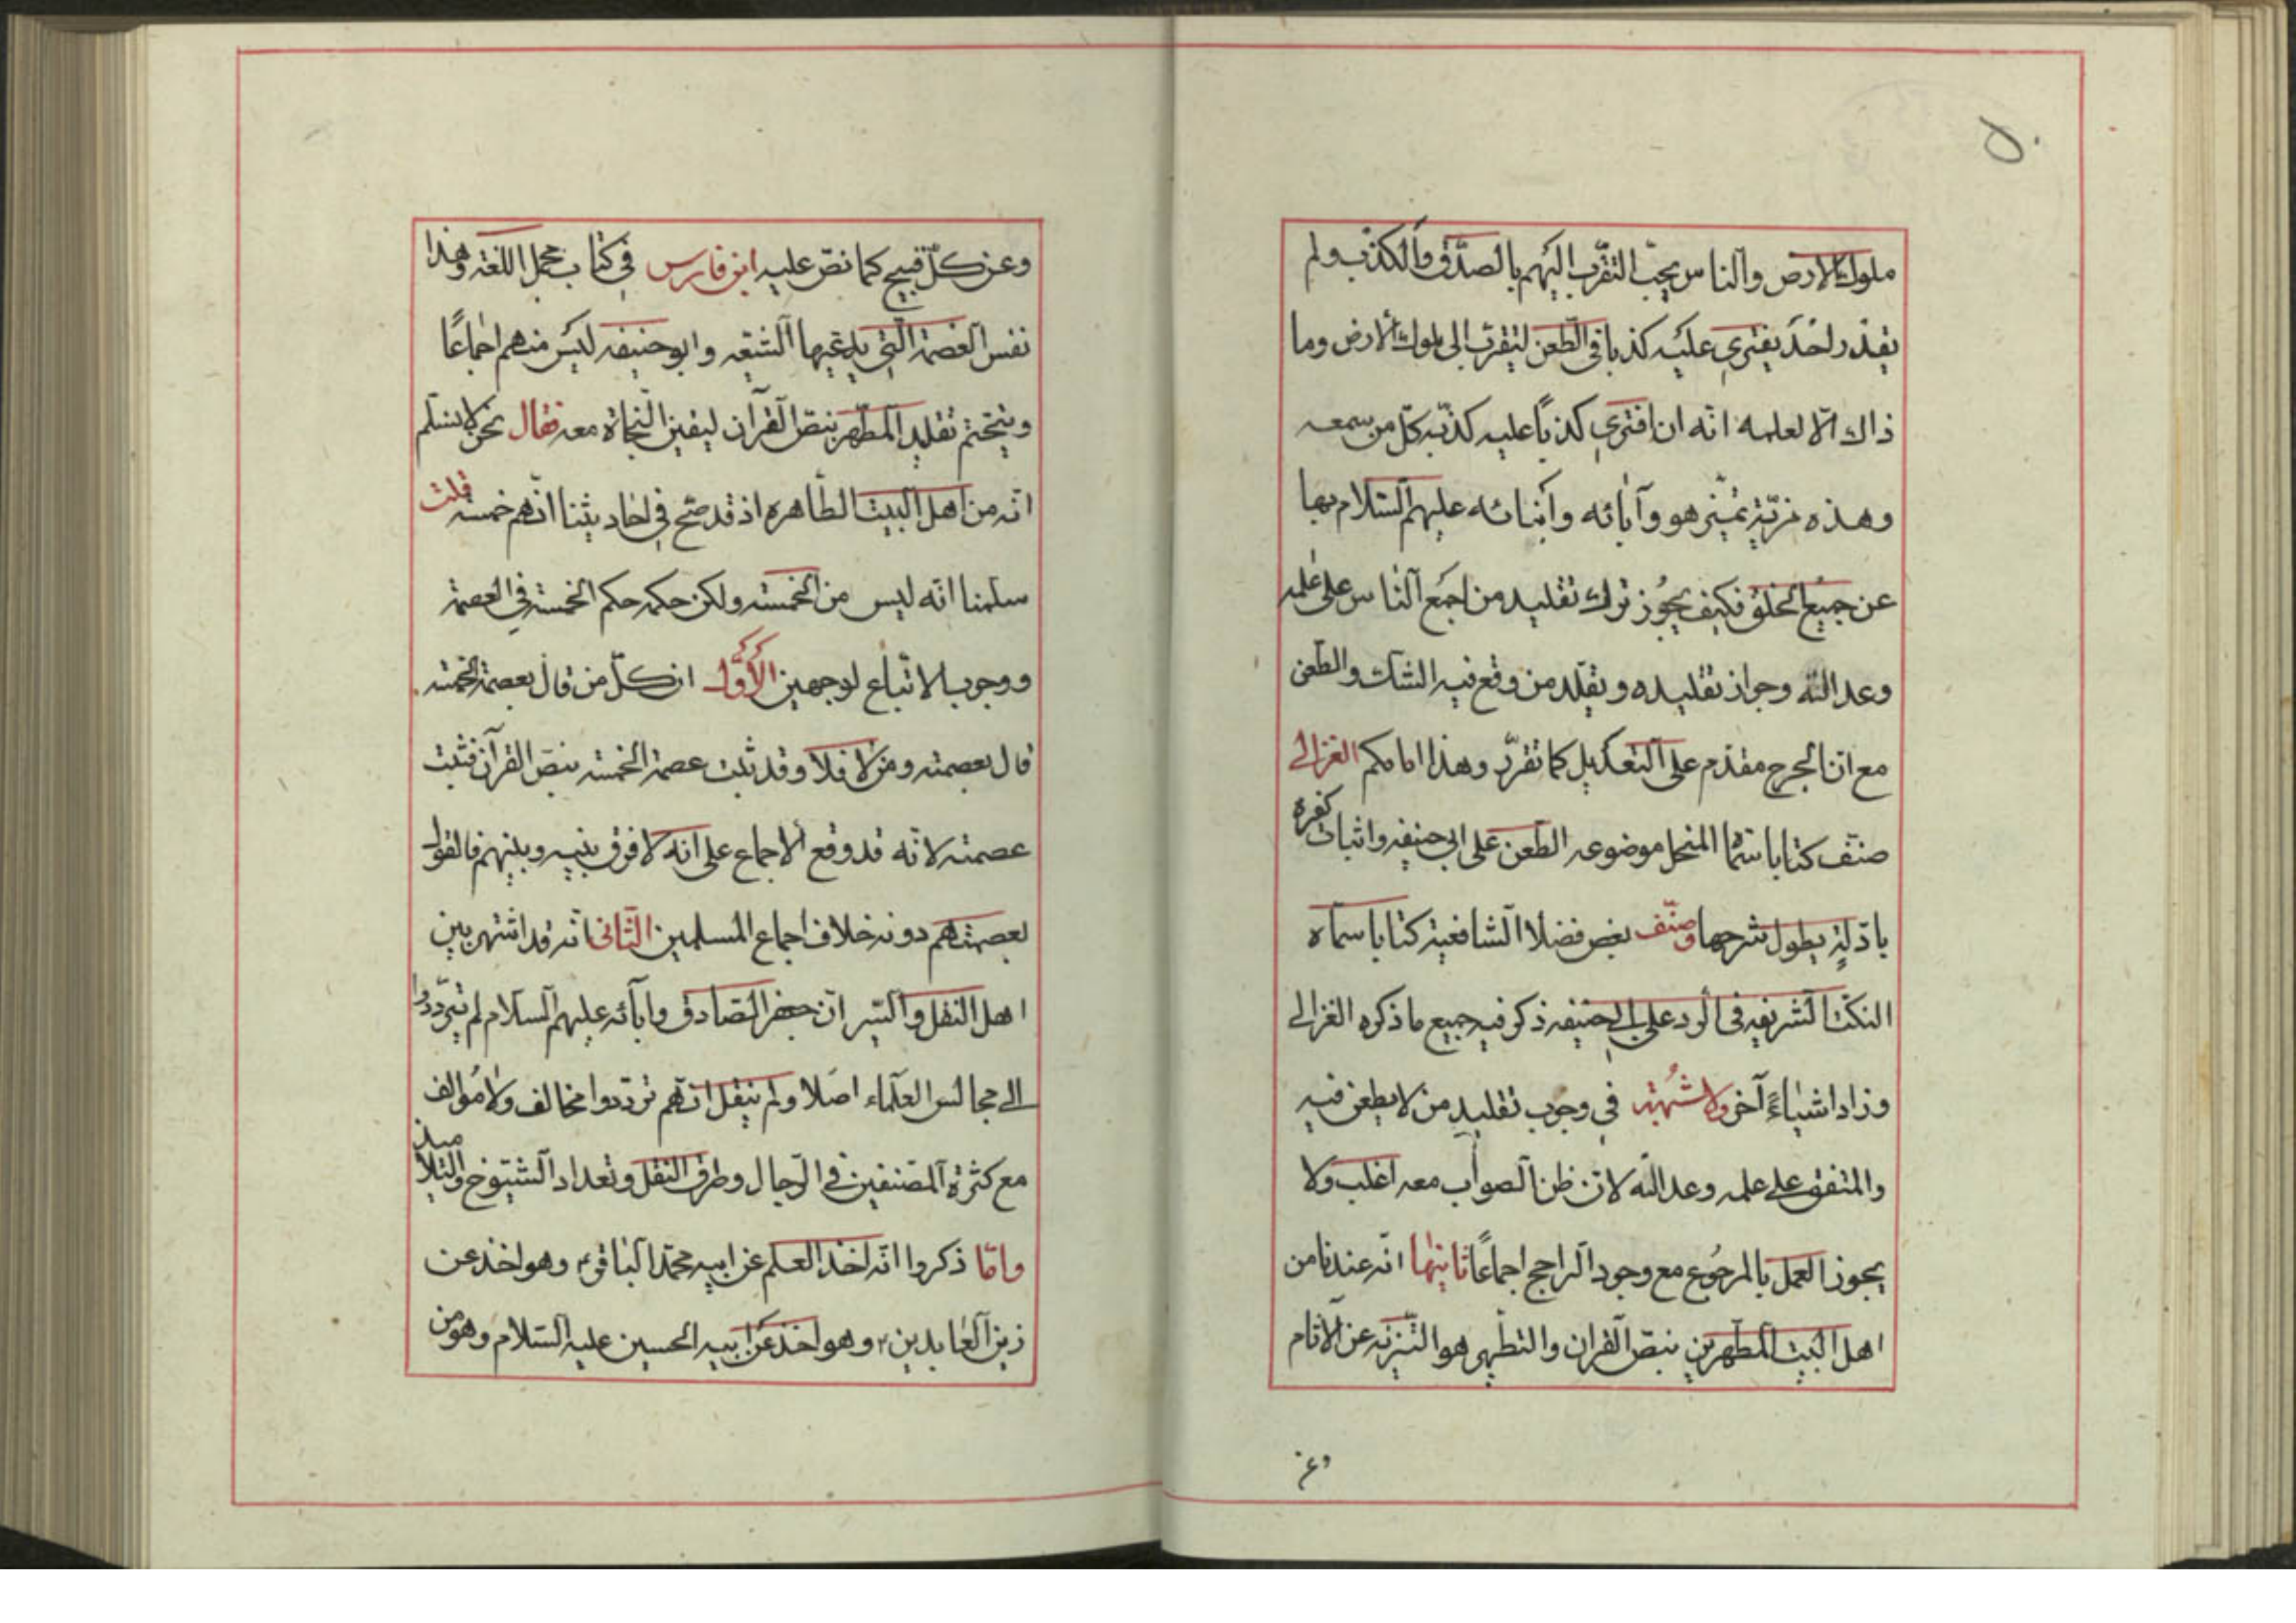 ٥٠
ملوك الارض والناس يحبّ التقرّب اليهم بالصدق والكذب ولم
يقدر احد يفتري عليه كذبا في الطعن ليتقرب الى ملوك الارض وما
ذاك الّا لعلمه انّه ان افترى كذباً عليه كذّبه كلّ من سمعه
وهذه مزيّة تميّز هو وآبائه وأبنائه عليهم السّلام بها
عن جميع الخلق فكيف يجوز ترك تقليد من اجمع الناس على علمه
وعدالته وجواز تقليده ويقلّد من وقع فيه الشك والطعن
مع انّ الجرح مقدّم على التعديل كما تقرّر وهذا امامكم الغزالي
صنّف كتابا سمّاه المنخل موضوعه الطعن على ابي حنيفه واثبات كفره
بادلّةٍ يطول شرحها وصنّف بعض فضلا الشافعية كتابا سماه
النكت الشريفه في الرد على ابي حنيفه ذكر فيه جميع ما ذكره الغزالي
وزاد اشياءً آخر ولا شبهة في وجوب تقليد من لا يطعن فيه
والمتفق على علمه وعدالته لان ظن الصواب معه اغلب ولا
يجوز العمل بالمرجوع مع وجود الراجح اجماعاً ثانيها انّه عندنا من
اهل البيت المطهرين بنصّ القران والتطهير هو التنزيه عن الآثام
وعن
وعن كلّ قبيح كما نصّ عليه ابن فارس في كتاب مجمل اللغة وهذا
نفس العصمة التي يدعيها الشيعه وابو حنيفه ليس منهم اجماعًا
ويتحتم تقليد المطهر بنصّ القرآن ليقين النجاة معه فقال نحن لا نسلم
انّه من اهل البيت الطاهره اذ قد صحّ في احاديثنا انّهم خمسه قلت
سلمنا انّه ليس من الخمسه ولكن حكمه حكم الخمسة في العصمة
ووجوب الاتّباع لوجهين الأوّل ان كلّ من قال بعصمة الخمسه
قال بعصمته ومن لا فلا وقد ثبت عصمة الخمسه بنصّ القرآن فثبت
عصمته لانّه قد وقع الاجماع على انّه لا فرق بينه وبينهم فالقول
بعصمتهم دونه خلاف اجماع المسلمين الثّاني انّه قد اشتهر بين
اهل النقل والسّير انّ جعفر الصّادق وابآئه عليهم السلام لم يتردّدوا
الى مجالس العلماء اصلا ولم ينقل انّهم تردّدوا مخالف ولا مؤالف
مع كثرة المصنفين في الرّجال وطرق النقل وتعداد الشيوخ والتلاميذ
وامّا ذكروا انّه اخذ العلم عن ابيه محمّد الباقر؏ وهو اخذ عن
زين العابدين؏ وهو اخذ عن ابيه الحسين عليه السّلام وهو من